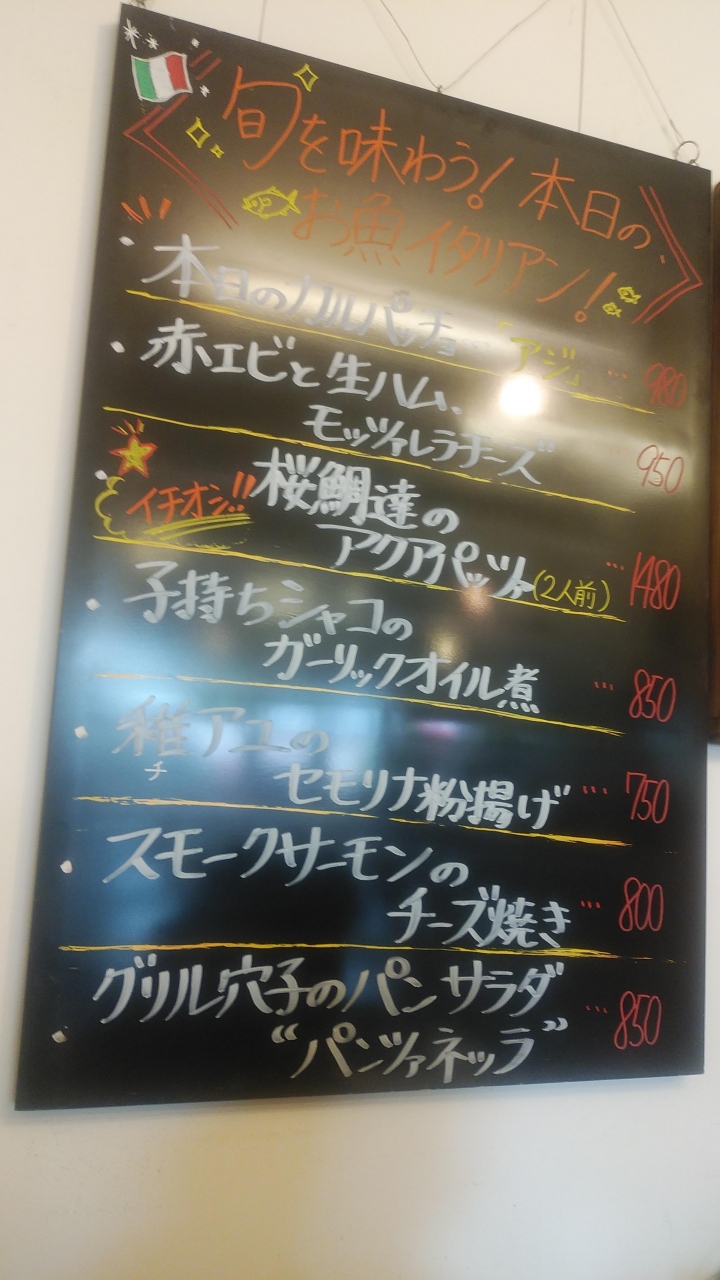 旬を味わう！本日の
お魚イタリアン！
・本日のカルパッチョ…「アジ」…980
・赤エビと生ハム、
モッツァレラチーズ 950
イチオシ!! 桜鯛達の
アクアパッツァ(2人前) …1480
・子持ちシャコの
ガーリックオイル煮 …850
・稚アユの
チ
セモリナ粉揚げ …750
・スモークサーモンの
チーズ焼き …800
・グリル穴子のパンサラダ
“パンツァネッラ” …850